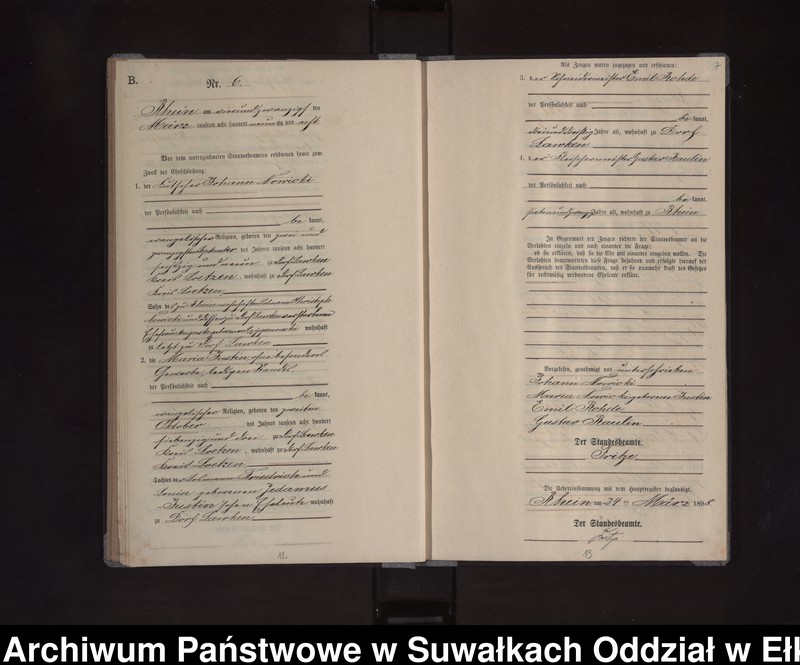 B.
Nr. 6.
Rhein am vierundzwanzigsten
März tausend acht hundert neunzig und acht
Vor dem unterzeichneten Standesbeamten erschienen heute zum
Zweck der Eheschließung:
1. der Johann Nowicki
der Persönlichkeit nach
be kannt,
evangelischer Religion, geboren den zwei und
des Jahres tausend acht hundert
zu Dorf Lawken
Kreis Loetzen, wohnhaft zu Dorf Lawken
Kreis Loetzen
Sohn des
Nowicki und
geborenen wohnhaft
zu letzt zu Dorf Lawken
2. die Maria Justin, ohne besonderes
Gewerbe, ledigen Standes
der Persönlichkeit nach
be kannt,
evangelischer Religion, geboren den zweiten
Oktober des Jahres tausend acht hundert
siebenzig und drei zu Dorf Lawken
Kreis Loetzen, wohnhaft zu Dorf Lawken
Kreis Loetzen
Tochter der Friedrich und
geborenen Jedamus
Justin schen Eheleute wohnhaft
zu Dorf Lawken
12
7
Als Zeugen waren zugezogen und erschienen:
3. der Schneidermeister Emil Rohde
der Persönlichkeit nach
be kannt,
Jahre alt, wohnhaft zu Dorf
Lawken
4. der Fleischermeister Gustav Raulin
der Persönlichkeit nach
be kannt,
Jahre alt, wohnhaft zu Rhein
In Gegenwart der Zeugen richtete der Standesbeamte an die
Verlobten einzeln und nach einander die Frage:
ob sie erklären, daß sie die Ehe mit einander eingehen wollen. Die
Verlobten beantworteten diese Frage bejahend und erfolgte hierauf der
Ausspruch des Standesbeamten, daß er sie nunmehr kraft des Gesetzes
für rechtmäßig verbundene Eheleute erkläre.
Vorgelesen, genehmigt und unterschrieben
Johann Nowicki
Maria Nowicki geborene Justin
Emil Rohde
Gustav Raulin
Der Standesbeamte.
Die Uebereinstimmung mit dem Hauptregister beglaubigt.
Rhein am 24 ten März 1898.
Der Standesbeamte.
13
Archiwum Państwowe w Suwałkach Oddział w Ełk